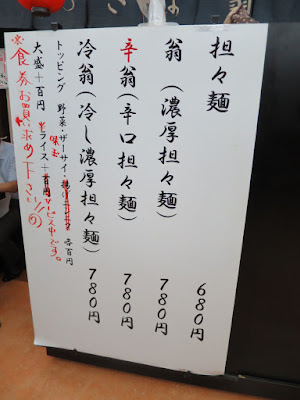 担々麺 680円
翁(濃厚担々麺) 780円
辛翁(辛口担々麺) 780円
冷翁(冷し濃厚担々麺) 780円
トッピング 野菜・ザーサイ・ 各百円
大盛+百円 ライス+百円 サービス中です。
※食券お買い求め下さい